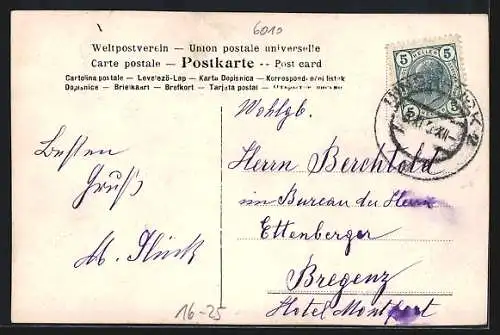 6010
Weltpostverein — Union postale universelle
Carte postale — Postkarte -- Post card
Cartolina postale — Levelező-Lap — Karta Dopisnica — Korrespondenzni listek
Dopisnice — Brielkaart — Brefkort — Tarjeta postal —
5 HELLER 5
5 5
Wohlgb.
Herrn Berchtold
im Bureau des Herrn
Ettenberger
Bregenz
Hotel Montfort
Besten
Gruß
M.
16-25